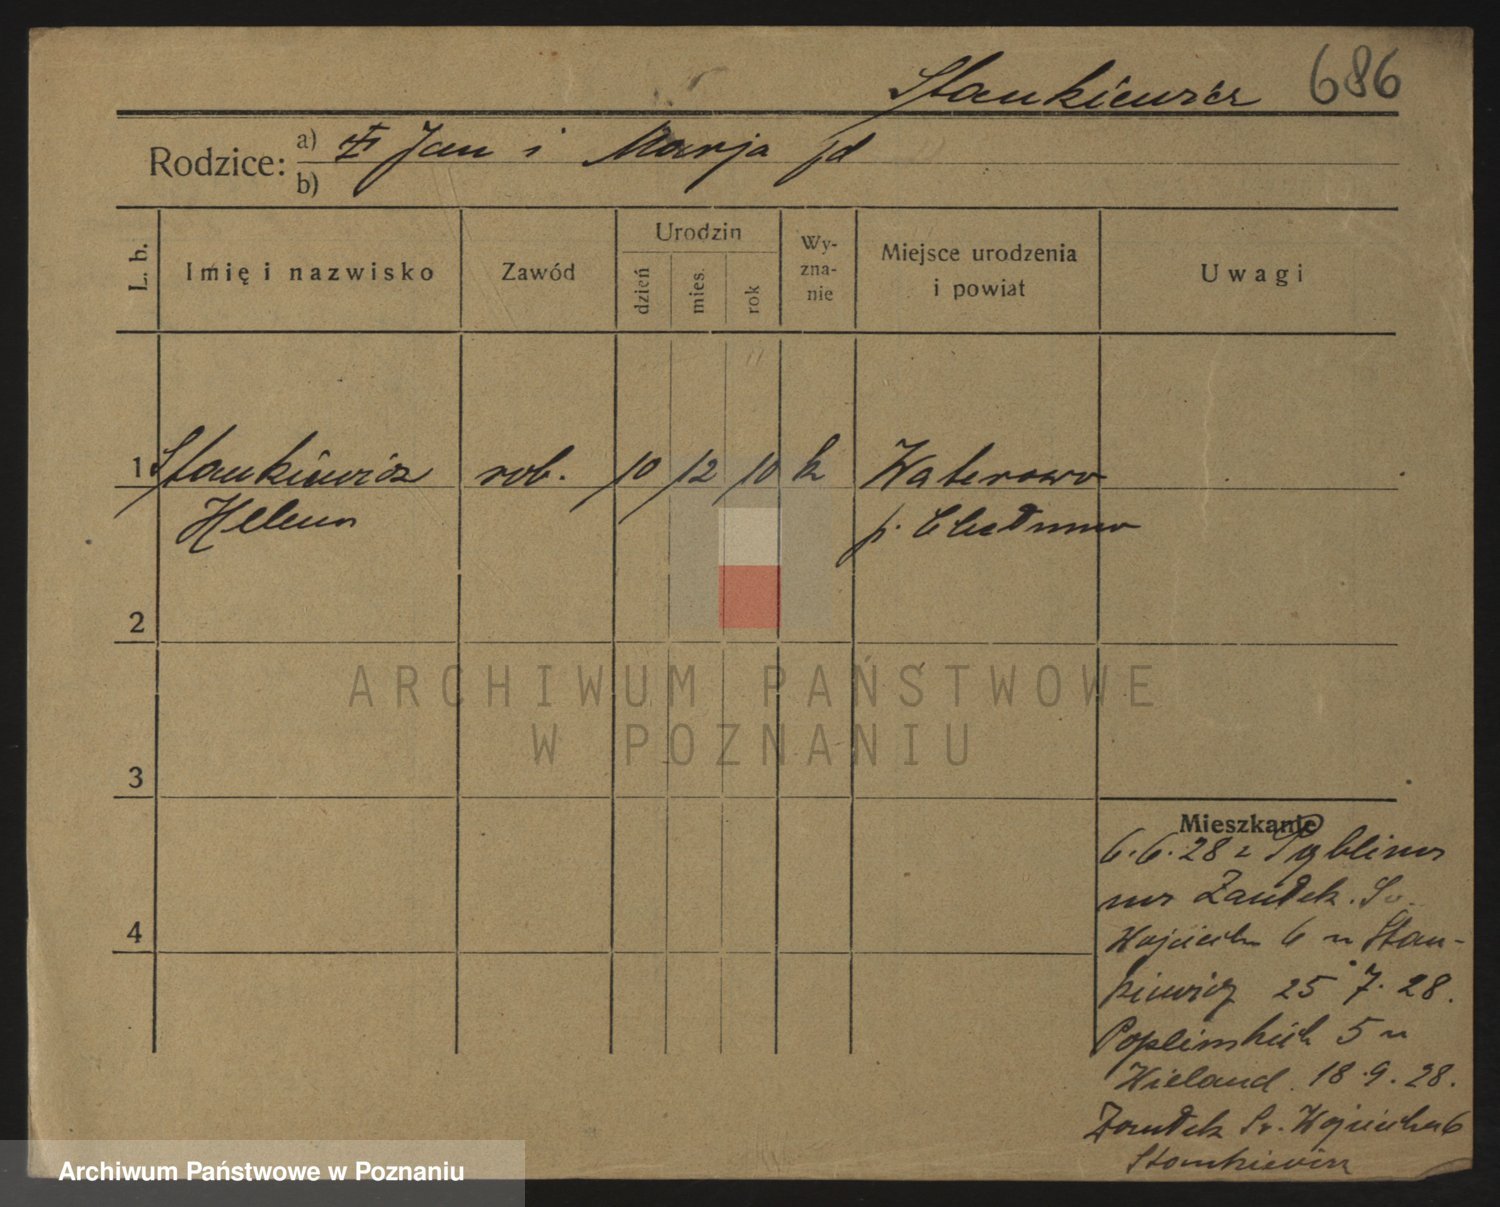 Stankiewicz 686
Rodzice: a) Jan i Marja
b)
L. b. Imię i nazwisko Zawód Urodzin dzień mies. rok Wy-zna-nie Miejsce urodzenia i powiat Uwagi
1 Stankiewicz rob. 10 12 10 k Waterowo
Helena p. Chełmno
2
ARCHIWUM PAŃSTWOWE
W POZNANIU
3
Mieszkanie
6.6.28 z
Zaułek. Św.
4
Wojciecha 6 u Stan-
kiewicz 25.7.28.
Poplińskich 5 u
Wieland 18.9.28.
Zaułek Św. Wojciecha 6
Stankiewicz
Archiwum Państwowe w Poznaniu